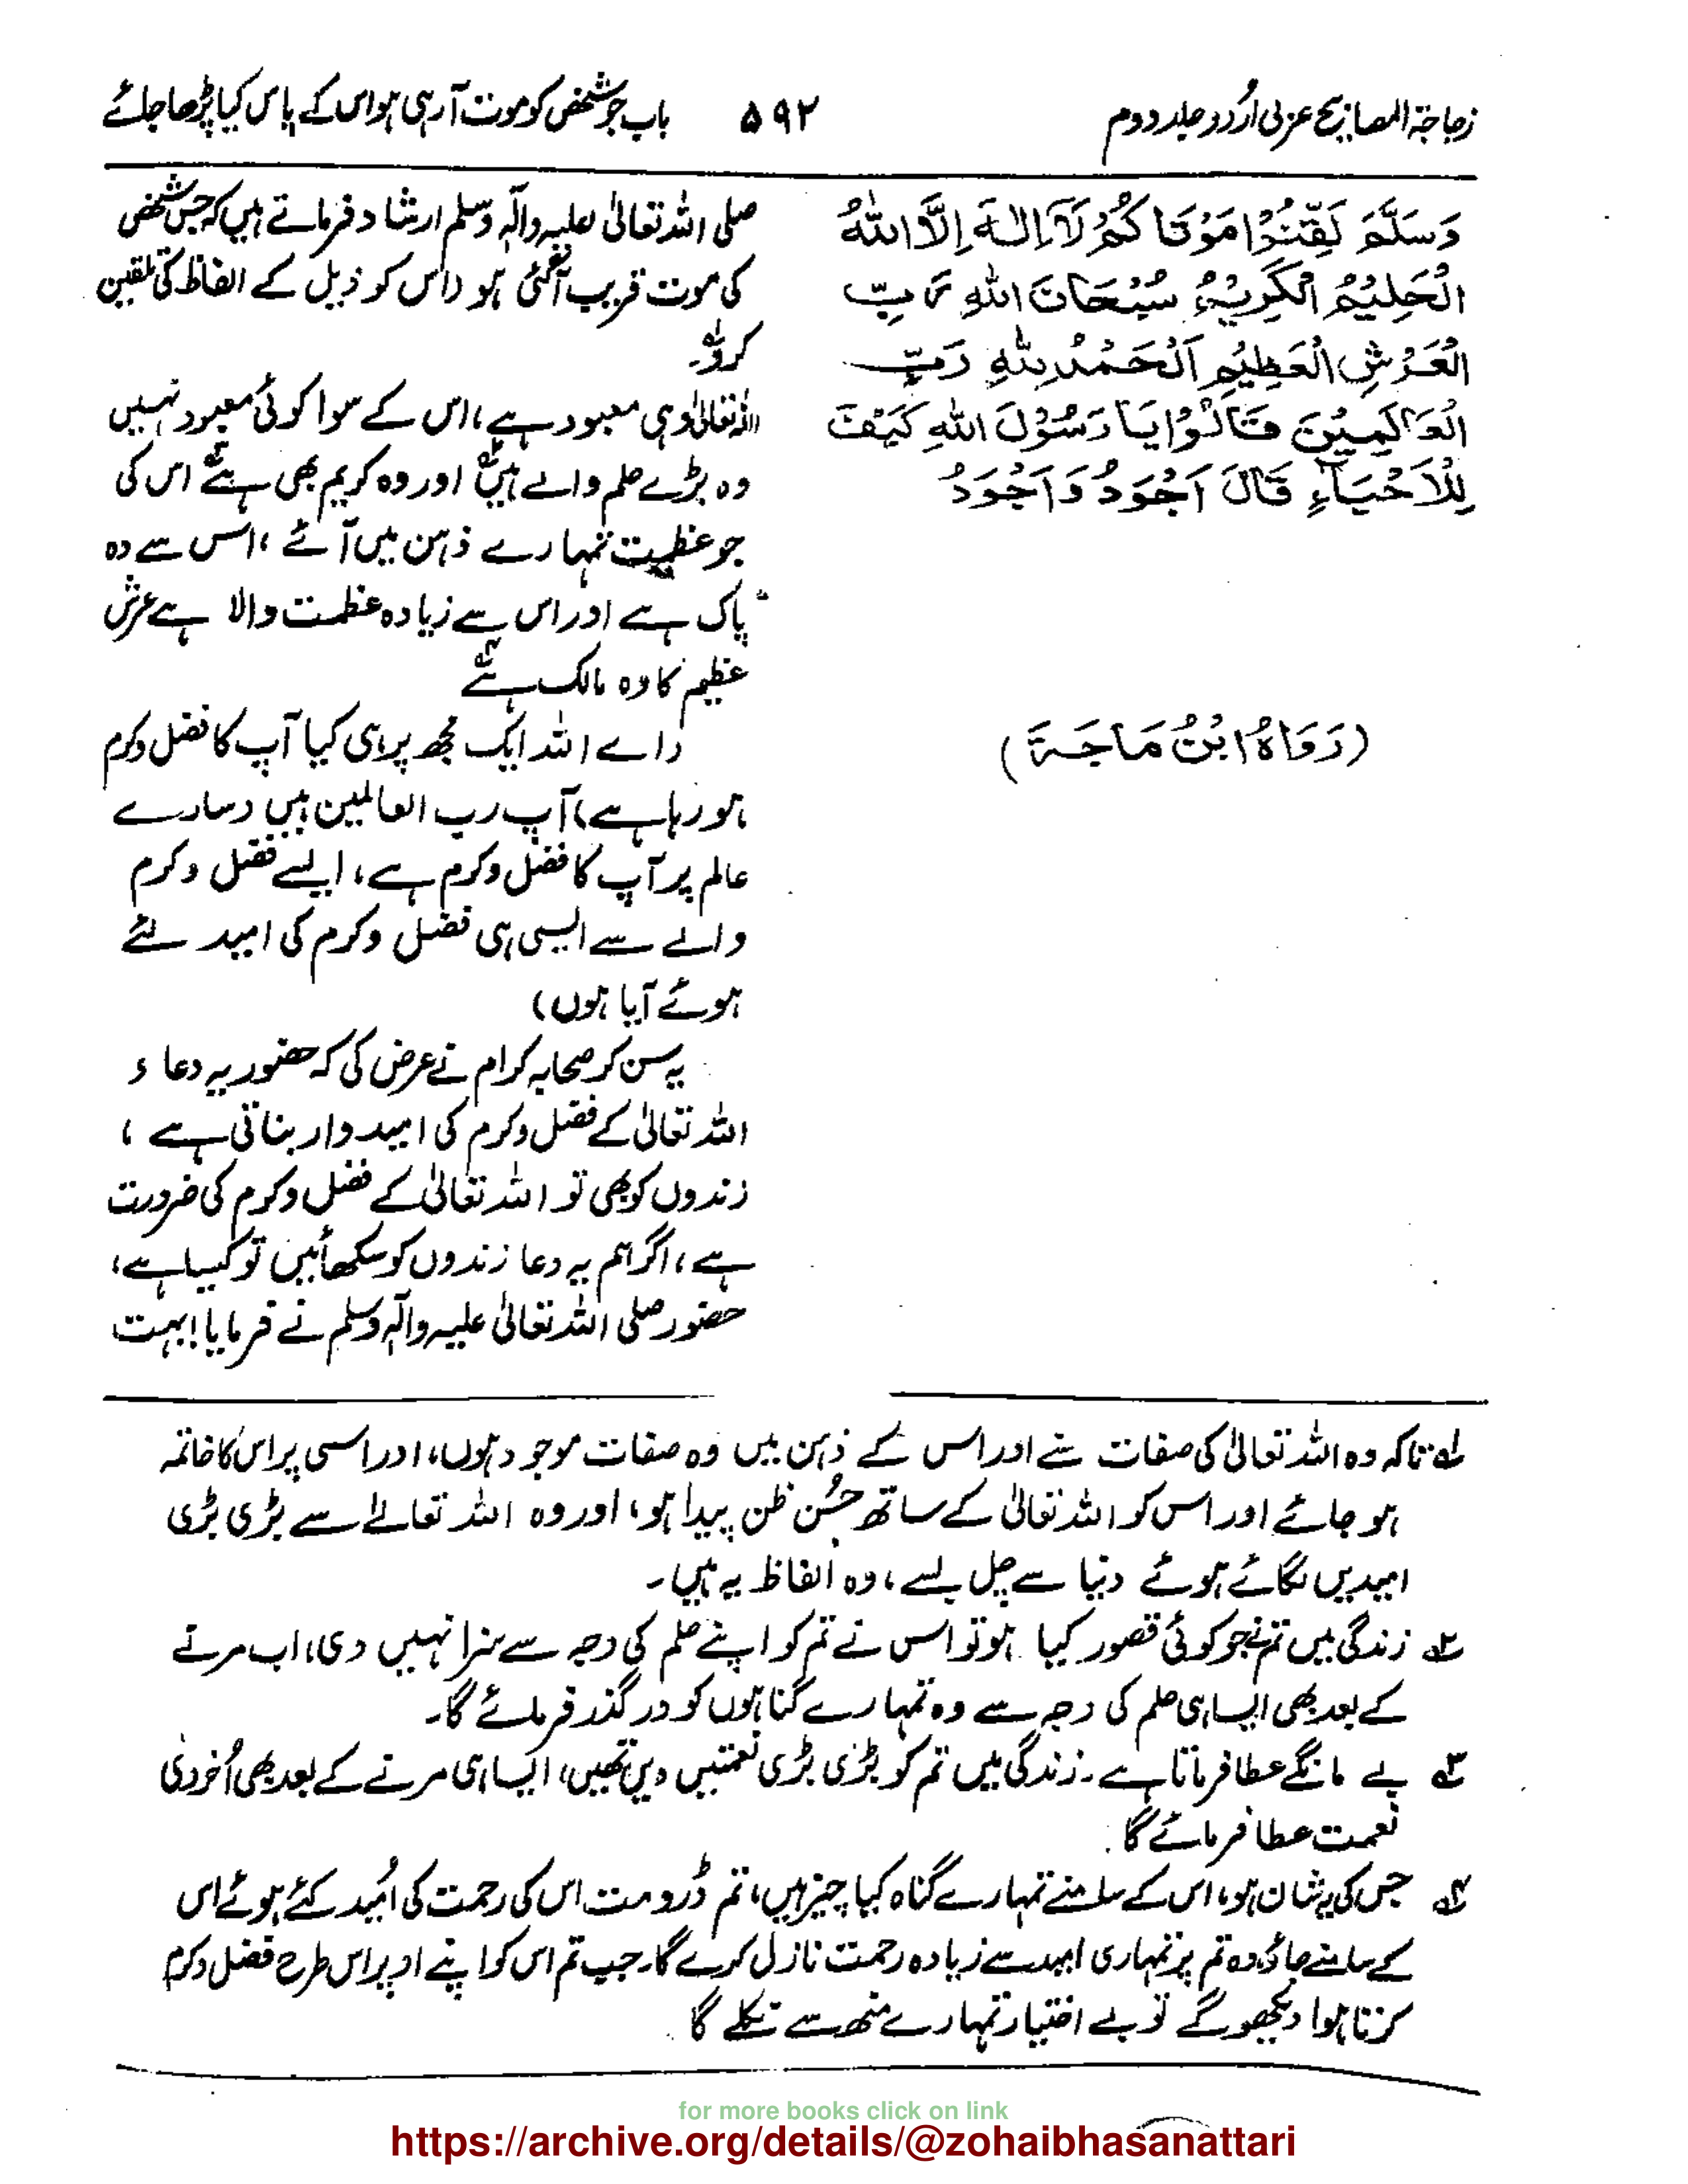 زجاجۃ المصابیح عربی اُردو جلد دوم
۵۹۲
باب جو شخص کو موت آرہی ہو اس کے پاس کیا پڑھا جائے
وَسَلَّمَ لَقِّنُوْا مَوْتَاكُمْ لَآ اِلٰهَ اِلَّا اللّٰهُ
الْحَلِيْمُ الْكَرِيْمُ سُبْحَانَ اللّٰهِ رَبِّ
الْعَرْشِ الْعَظِيْمِ اَلْحَمْدُ لِلّٰهِ رَبِّ
الْعَالَمِيْنَ قَالُوْا يَا رَسُوْلَ اللّٰهِ كَيْفَ
لِلْاَحْيَاءِ قَالَ اَجْوَدُ وَاَجْوَدُ
(رَوَاهُ ابْنُ مَاجَةَ)
صلی اللہ تعالیٰ علیہ والہٖ وسلم ارشاد فرماتے ہیں کہ جس شخص
کی موت قریب آگئی ہو (اس کو ذیل کے الفاظ کی تلقین
کرو)۔
اللہ تعالیٰ وہی معبود ہے، اس کے سوا کوئی معبود نہیں
وہ بڑے حلم والے ہیں اور وہ کریم بھی ہے اس کی
جو عظمت تمہارے ذہن میں آئے، اس سے وہ
پاک ہے اور اس سے زیادہ عظمت والا ہے عرش
عظیم کا وہ مالک ہے
(اے اللہ ایک مجھ پر ہی کیا آپ کا فضل وکرم
ہو رہا ہے) آپ رب العالمین ہیں (سارے
عالم پر آپ کا فضل وکرم ہے، ایسے فضل وکرم
والے سے ایسی ہی فضل وکرم کی امید لئے
ہوئے آیا ہوں)
یہ سن کر صحابہ کرام نے عرض کی کہ حضور یہ دعاء
اللہ تعالیٰ کے فضل وکرم کی امید وار بناتی ہے،
زندوں کو بھی تو اللہ تعالیٰ کے فضل وکرم کی ضرورت
ہے، اگر ہم یہ دعا زندوں کو سکھائیں تو کیسا ہے،
حضور صلی اللہ تعالیٰ علیہ والہٖ وسلم نے فرمایا! بہت
۱؎ تاکہ وہ اللہ تعالیٰ کی صفات سنے اور اس کے ذہن میں وہ صفات موجود ہوں، اور اسی پر اس کا خاتمہ
ہو جائے اور اس کو اللہ تعالیٰ کے ساتھ حُسن ظن پیدا ہو، اور وہ اللہ تعالےٰ سے بڑی بڑی
امیدیں لگائے ہوئے دنیا سے چل بسے، وہ الفاظ یہ ہیں۔
۲؎ زندگی میں تم نے جو کوئی قصور کیا ہو تو اس نے تم کو اپنے حلم کی وجہ سے سزا نہیں دی، اب مرتے
کے بعد بھی ایسا ہی حلم کی وجہ سے وہ تمہارے گناہوں کو در گذر فرمائے گا۔
۳؎ بے مانگے عطا فرماتا ہے۔ زندگی میں تم کو بڑی بڑی نعمتیں دیں تھیں، ایسا ہی مرنے کے بعد بھی اُخروی
نعمت عطا فرمائے گا۔
۴؎ جس کی یہ شان ہو، اس کے سامنے تمہارے گناہ کیا چیز ہیں، تم ڈرو مت اس کی رحمت کی اُمید کئے ہوئے اس
کے سامنے جاؤ، وہ تم پر تمہاری امید سے زیادہ رحمت نازل کرے گا۔ جب تم اس کو اپنے اوپر اس طرح فضل وکرم
کرتا ہوا دیکھو گے تو بے اختیار تمہارے منھ سے نکلے گا
for more books click on link
https://archive.org/details/@zohaibhasanattari